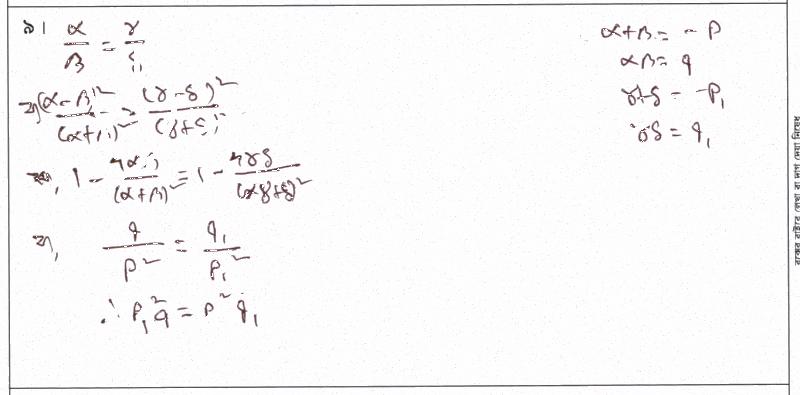 ৯। α/β = γ/δ
বা, (α-β)²/(α+β)² = (γ-δ)²/(γ+δ)²
বা, 1 - 4αβ/(α+β)² = 1 - 4γδ/(γ+δ)²
বা, q/p² = q₁/p₁²
∴ p₁²q = p²q₁
α+β = -p
αβ = q
γ+δ = -p₁
γδ = q₁